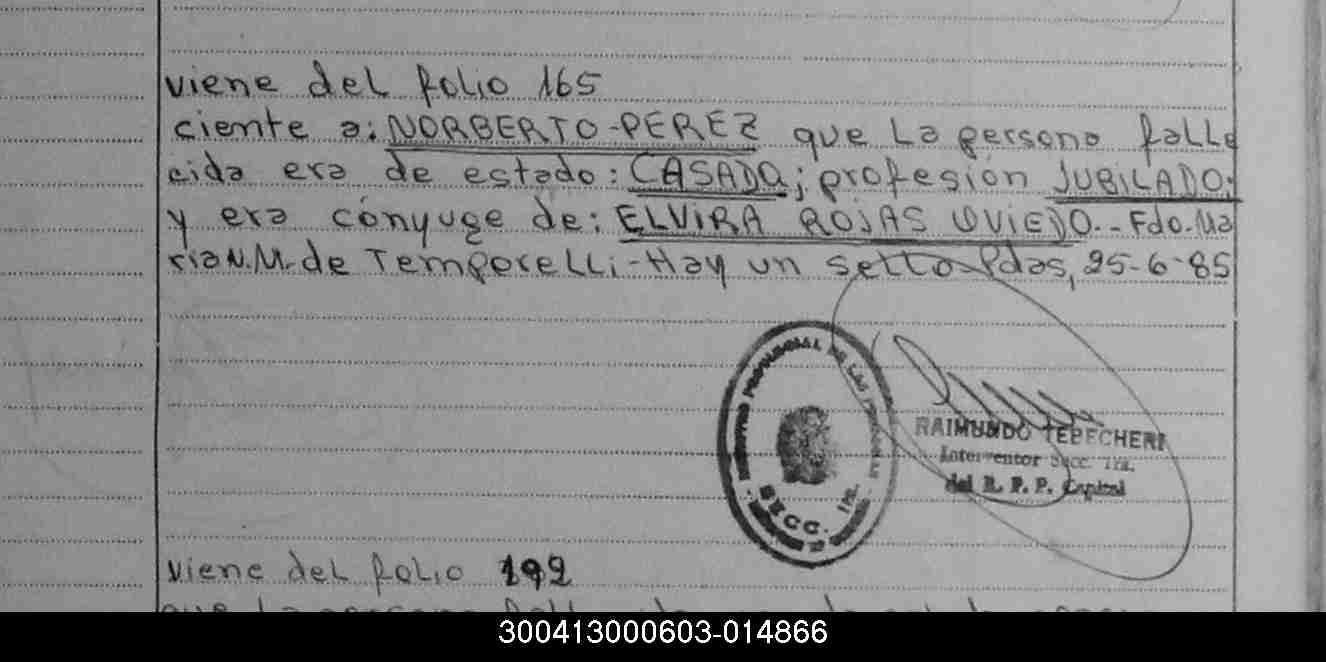 viene del folio 165
ciente a: NORBERTO-PEREZ que la persona falle
cida era de estado: CASADO; profesión JUBILADO;
y era cónyuge de: ELVIRA ROJAS OVIEDO.- Fdo. Ma
ria N.M. de Temporelli-Hay un sello-Pdas, 25-6-85
REGISTRO PROVINCIAL DE LAS PERSONAS
SECC. 1ra.
RAIMUNDO TEPECHERI
Interventor Secc. 1ra.
del R. P. P. Capital
viene del folio 192
que la persona
300413000603-014866